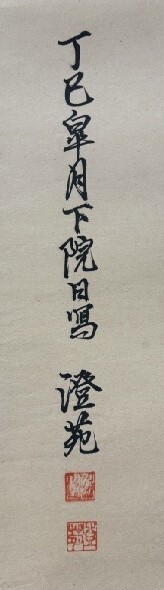 丁巳皐月下院日寫 澄苑